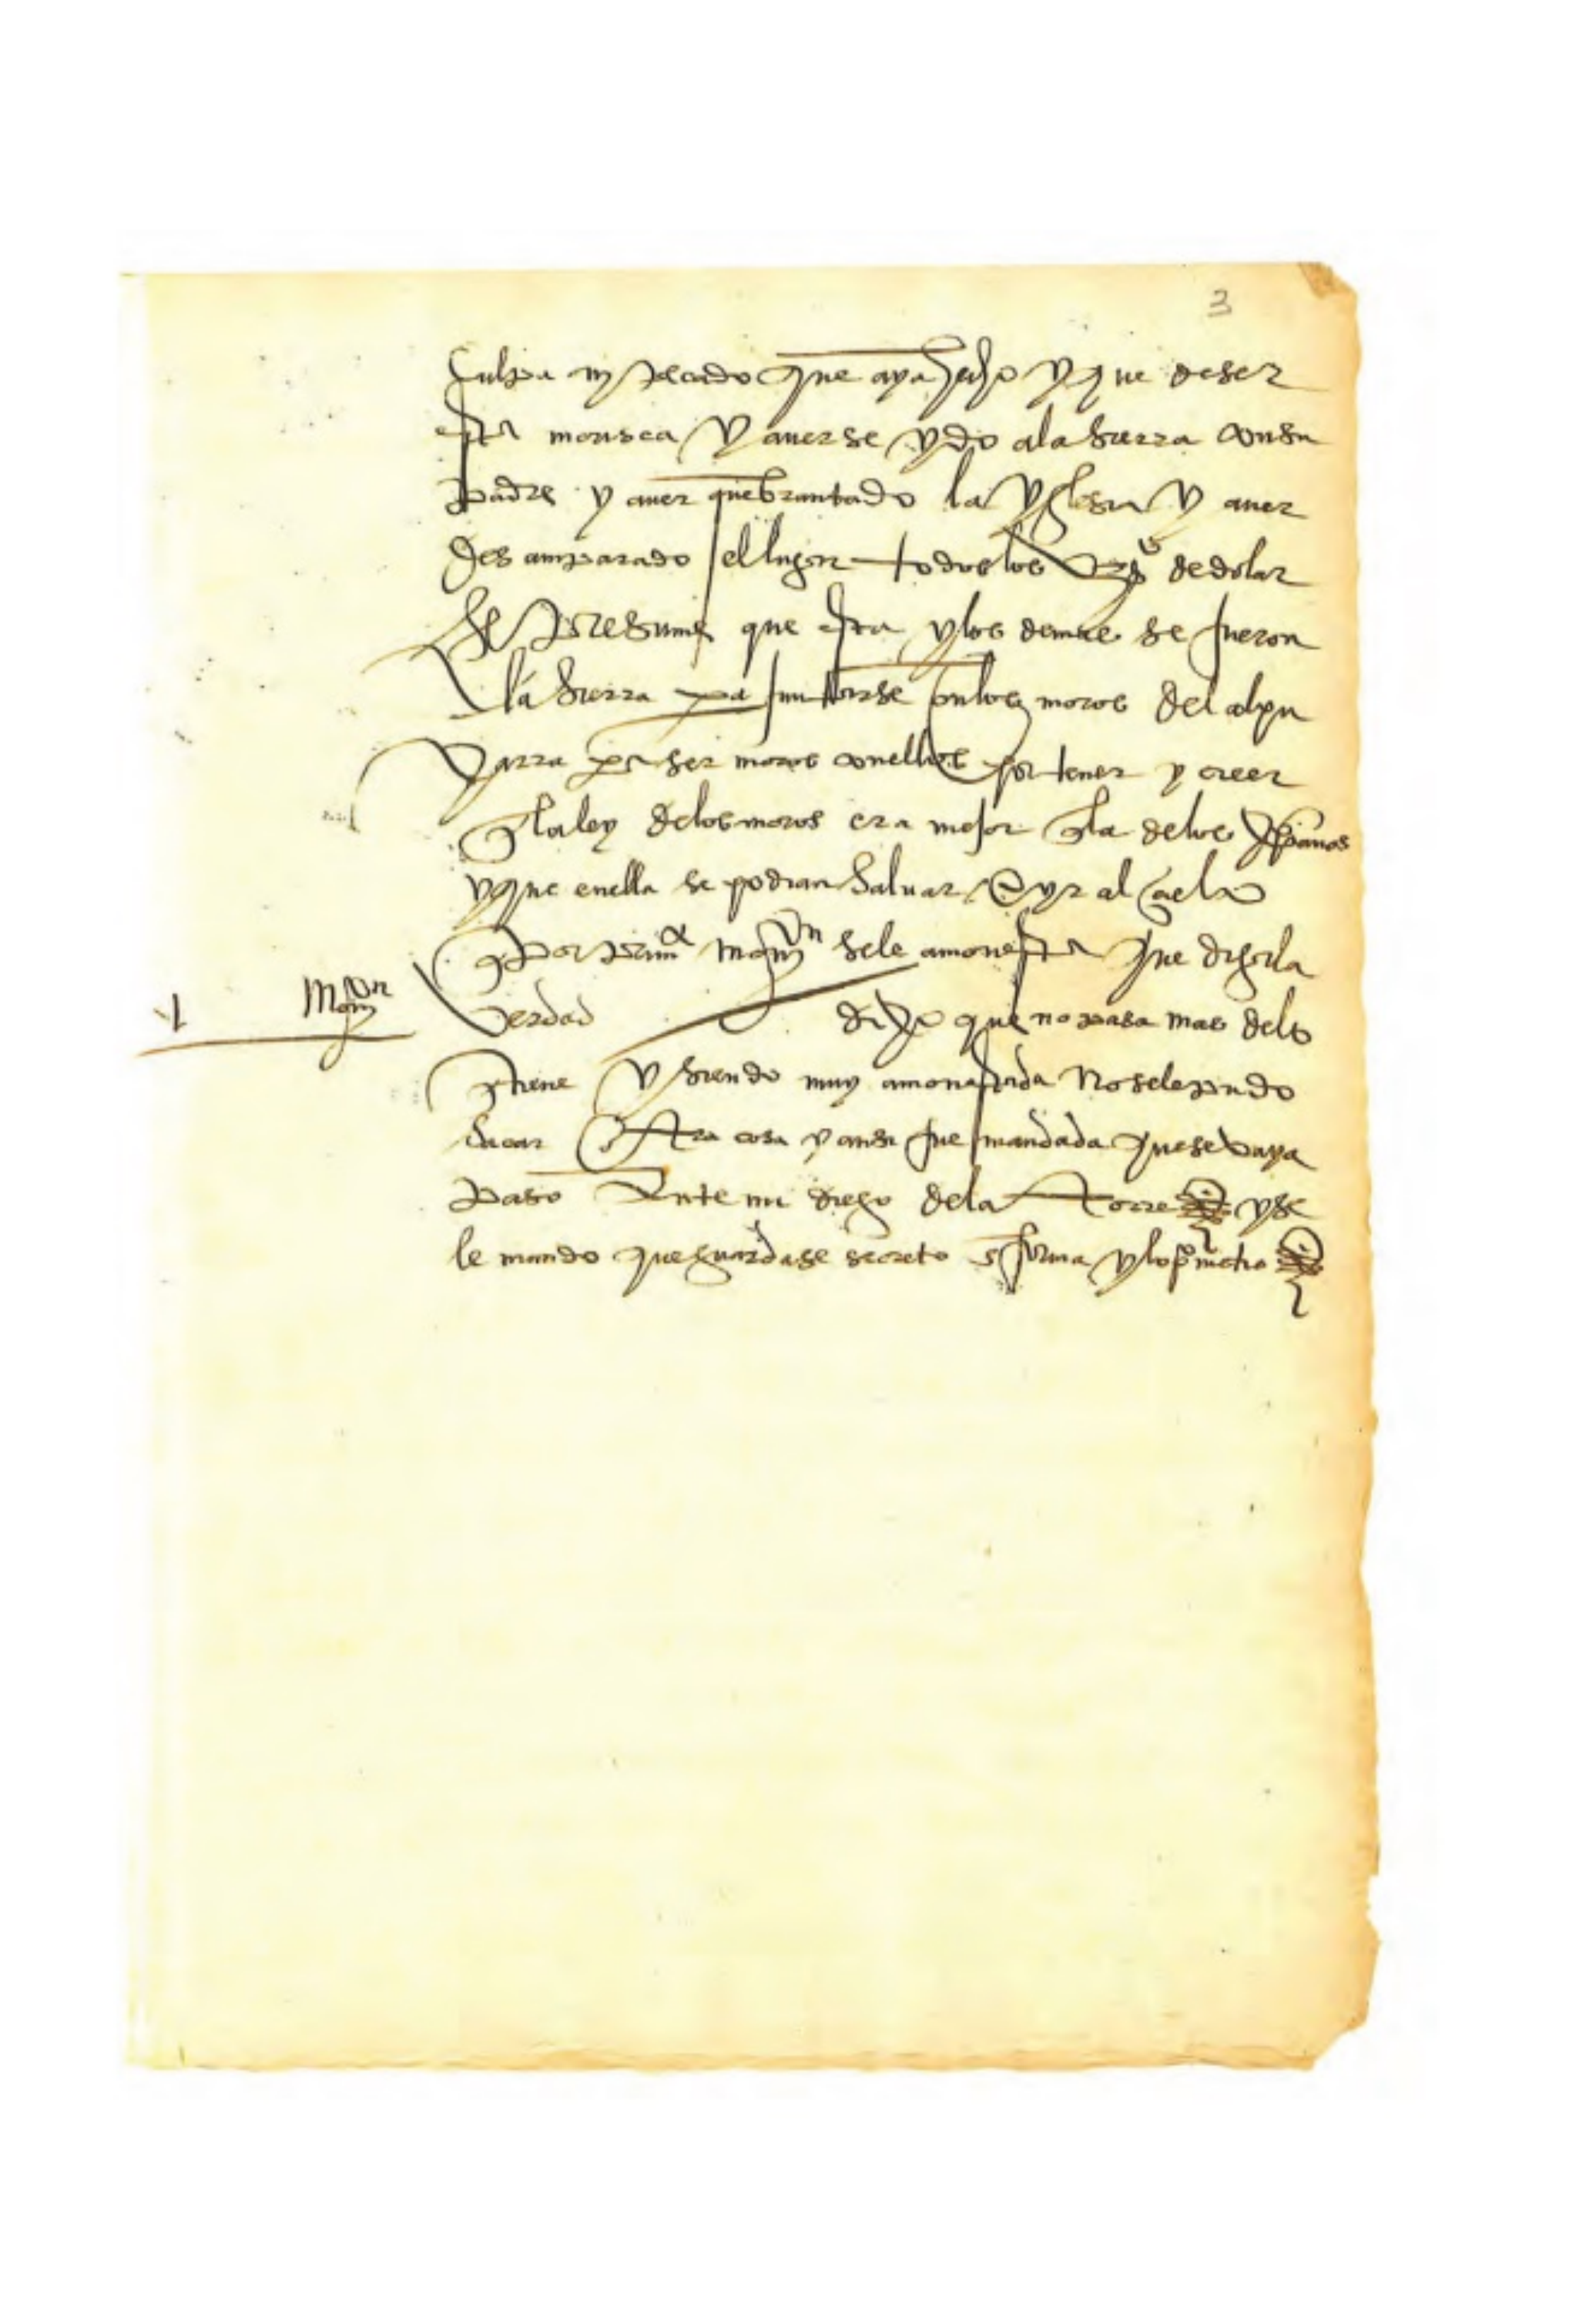 3
culpa ny pecado que aya hecho y que de ser
esta morisca y averse ydo a la sierra con su
padre y aver quebrantado la yglesia y aver
desamparado el lugar todos los vºs de dolar
se presume que esta y los demas se fueron
a la sierra pa juntarse con los moros del alpu
xarra pa ser moros con ellos por tener y creer
q la ley de los moros era mejor q la de los xpianos
y que en ella se podian salvar e yr al cielo
por prima moniçn se le amonesta que diga la
moniçn
verdad dixo que no pasa mas de lo
q tiene y siendo muy amonestada no se le pudo
sacar otra cosa y ansi fue mandada que se vaya
paso ante mi diego de la torre y se
le mando que guardase secreto en forma y lo pmetio